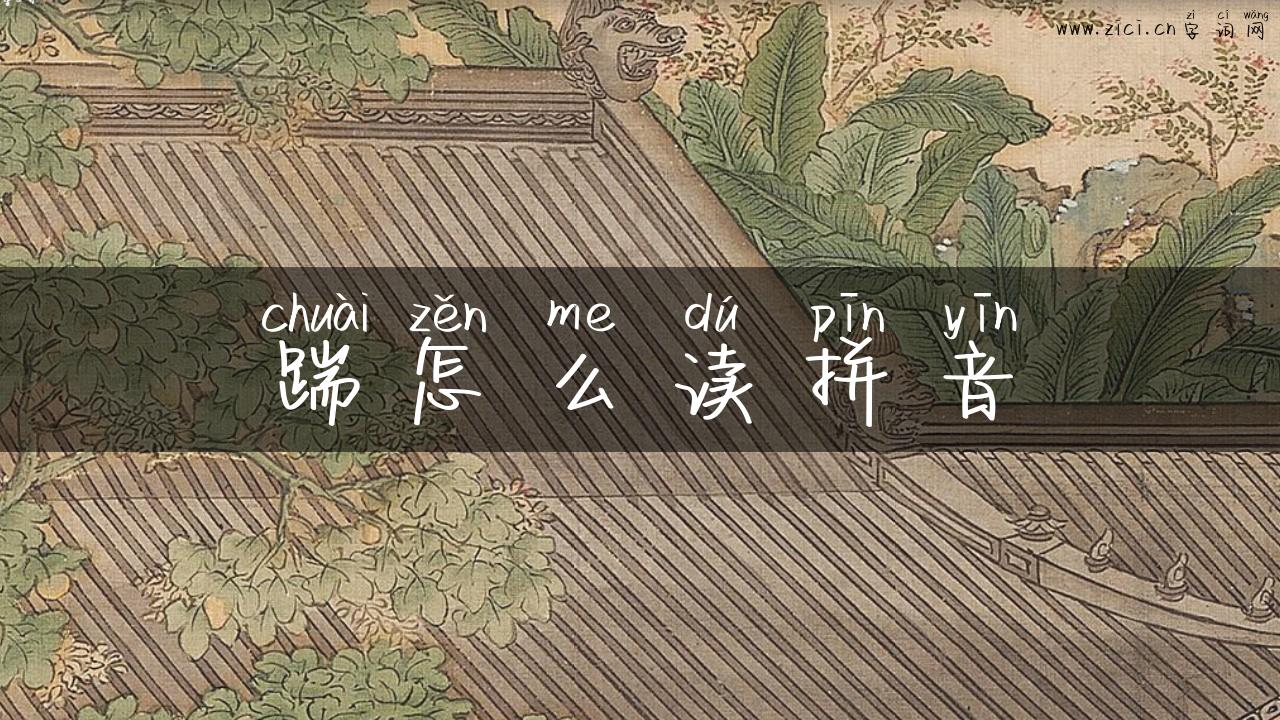 zì cí wǎng
www.zici.cn 字词网
chuài zěn me dú pīn yīn
踹怎么读拼音